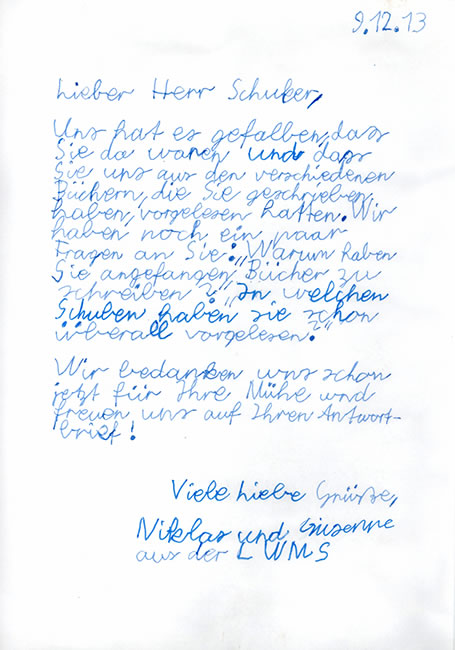 9.12.13
Lieber Herr Schuker,
Uns hat es gefallen, dass
Sie da waren und dass
Sie uns aus den verschiedenen
Büchern, die Sie geschrieben
haben, vorgelesen hatten. Wir
haben noch ein paar
Fragen an Sie: „Warum haben
Sie angefangen Bücher zu
schreiben?" „In welchen
Schulen haben sie schon
überall vorgelesen?"
Wir bedanken uns schon
jetzt für Ihre Mühe und
freuen uns auf Ihren Antwort-
brief!
Viele liebe Grüsse,
Niklas und Susanne
aus der LWMS